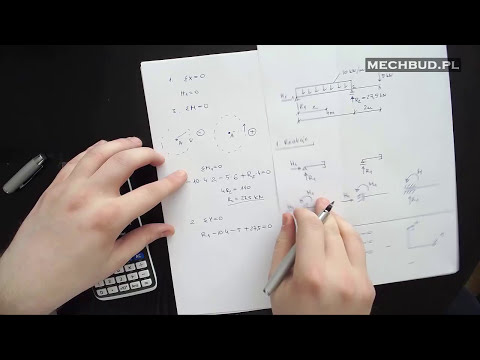 MECHBUD.PL
1. ΣX=0
H₁=0
2. ΣM=0
A
ΣM₁=0
-10·4·2-5·6+R₂·4=0
4R₂=110
R₂=27,5 kN
ΣY=0
R₁-10·4-5+27,5=0
10 kN/m
5 kN
H₁
R₁
R₂=27,5 kN
4m
2m
1. Reakcje
H₁
R₁
R₁
M₁
H